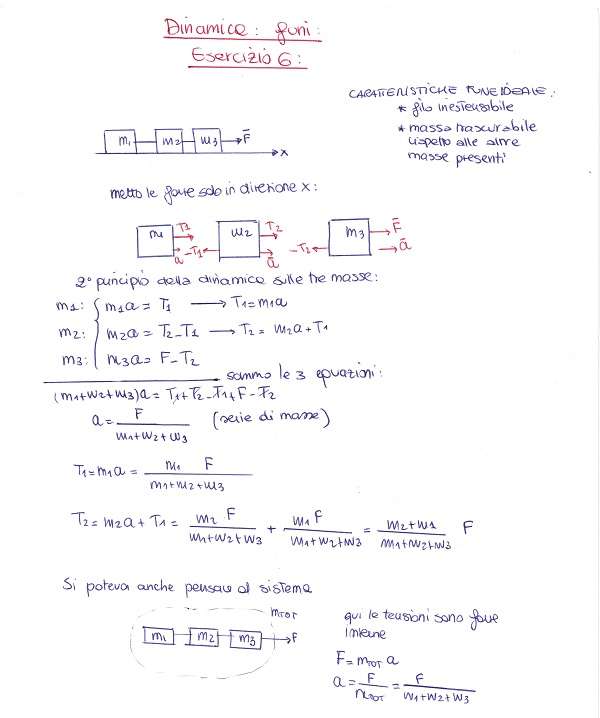 Dinamica: funi:
Esercizio 6:
CARATTERISTICHE FUNE IDEALE:
* filo inestensibile
* massa trascurabile
rispetto alle altre
masse presenti
m1 m2 m3 F̄
x
metto le forze solo in direzione x:
m1 T1 a -T1 m2 T2 ā -T2 m3 F̄ ā
2° principio della dinamica sulle tre masse:
m1: m1a = T1 → T1 = m1a
m2: m2a = T2 - T1 → T2 = m2a + T1
m3: m3a = F - T2
sommo le 3 equazioni:
(m1+m2+m3)a = T1+T2-T1+F-T2
a = F / (m1+m2+m3) (serie di masse)
T1 = m1a = m1 F / (m1+m2+m3)
T2 = m2a + T1 = m2 F / (m1+m2+m3) + m1 F / (m1+m2+m3) = (m2+m1) / (m1+m2+m3) F
Si poteva anche pensare al sistema
mTOT
m1 m2 m3 F
qui le tensioni sono forze
interne
F = mTOT a
a = F / mTOT = F / (m1+m2+m3)